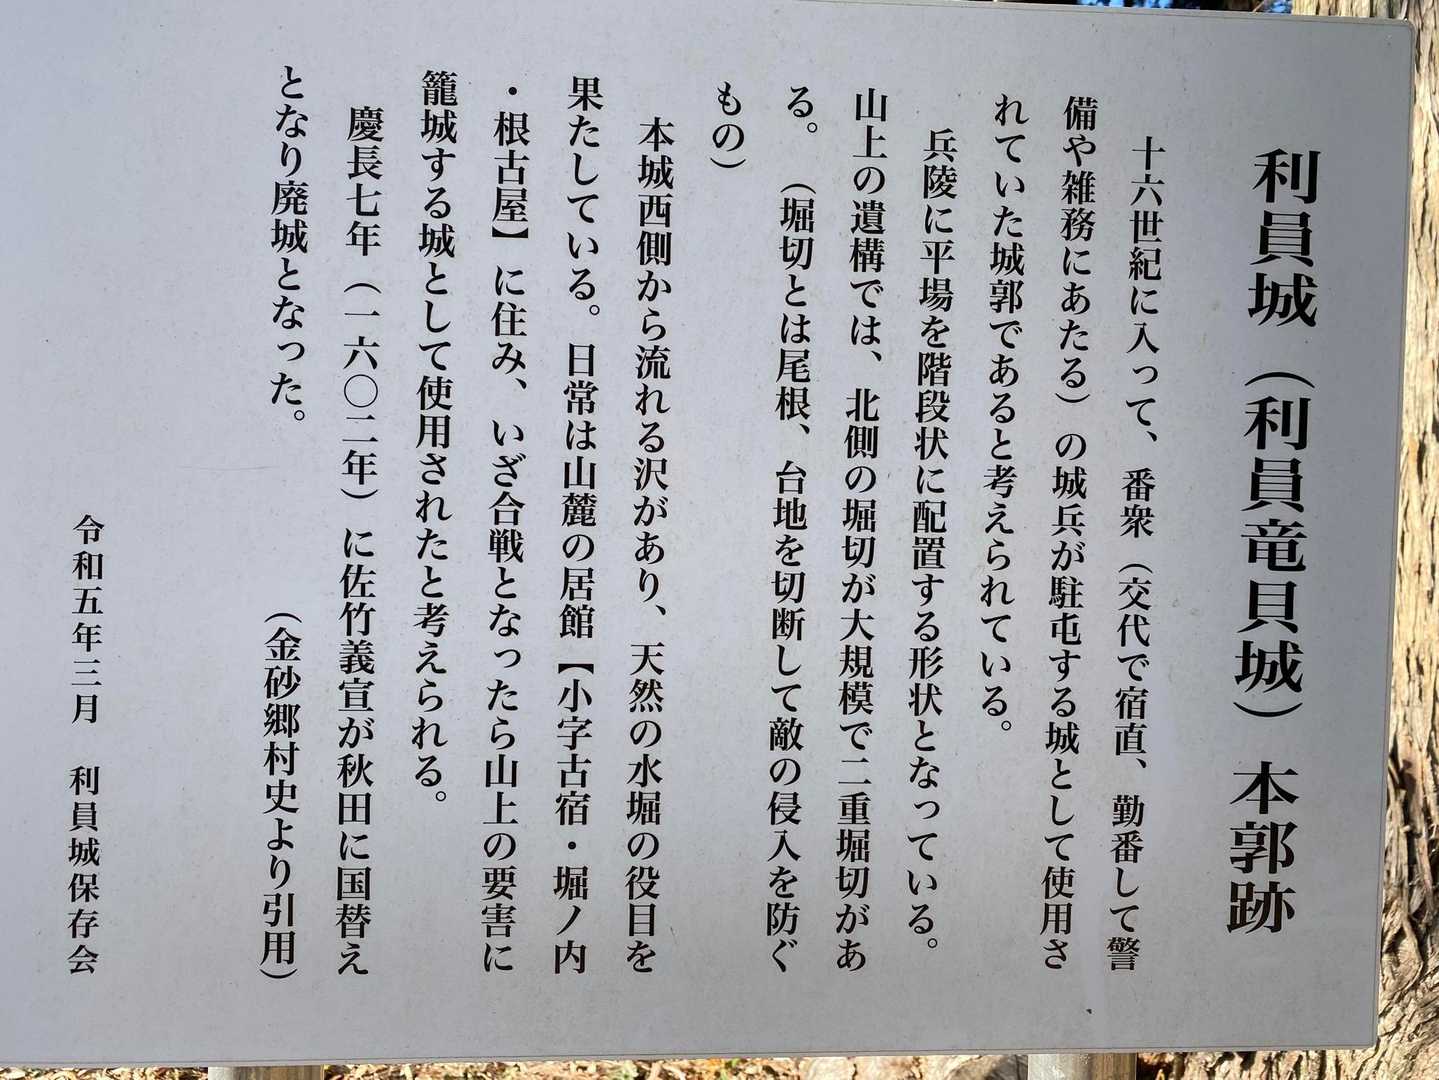 利員城（利員竜貝城）本郭跡
十六世紀に入って、番衆（交代で宿直、勤番して警
備や雑務にあたる）の城兵が駐屯する城として使用さ
れていた城郭であると考えられている。
兵陵に平場を階段状に配置する形状となっている。
山上の遺構では、北側の堀切が大規模で二重堀切があ
る。（堀切とは尾根、台地を切断して敵の侵入を防ぐ
もの）
本城西側から流れる沢があり、天然の水堀の役目を
果たしている。日常は山麓の居館【小字古宿・堀ノ内
・根古屋】に住み、いざ合戦となったら山上の要害に
籠城する城として使用されたと考えられる。
慶長七年（一六〇二年）に佐竹義宣が秋田に国替え
となり廃城となった。
（金砂郷村史より引用）
令和五年三月　利員城保存会